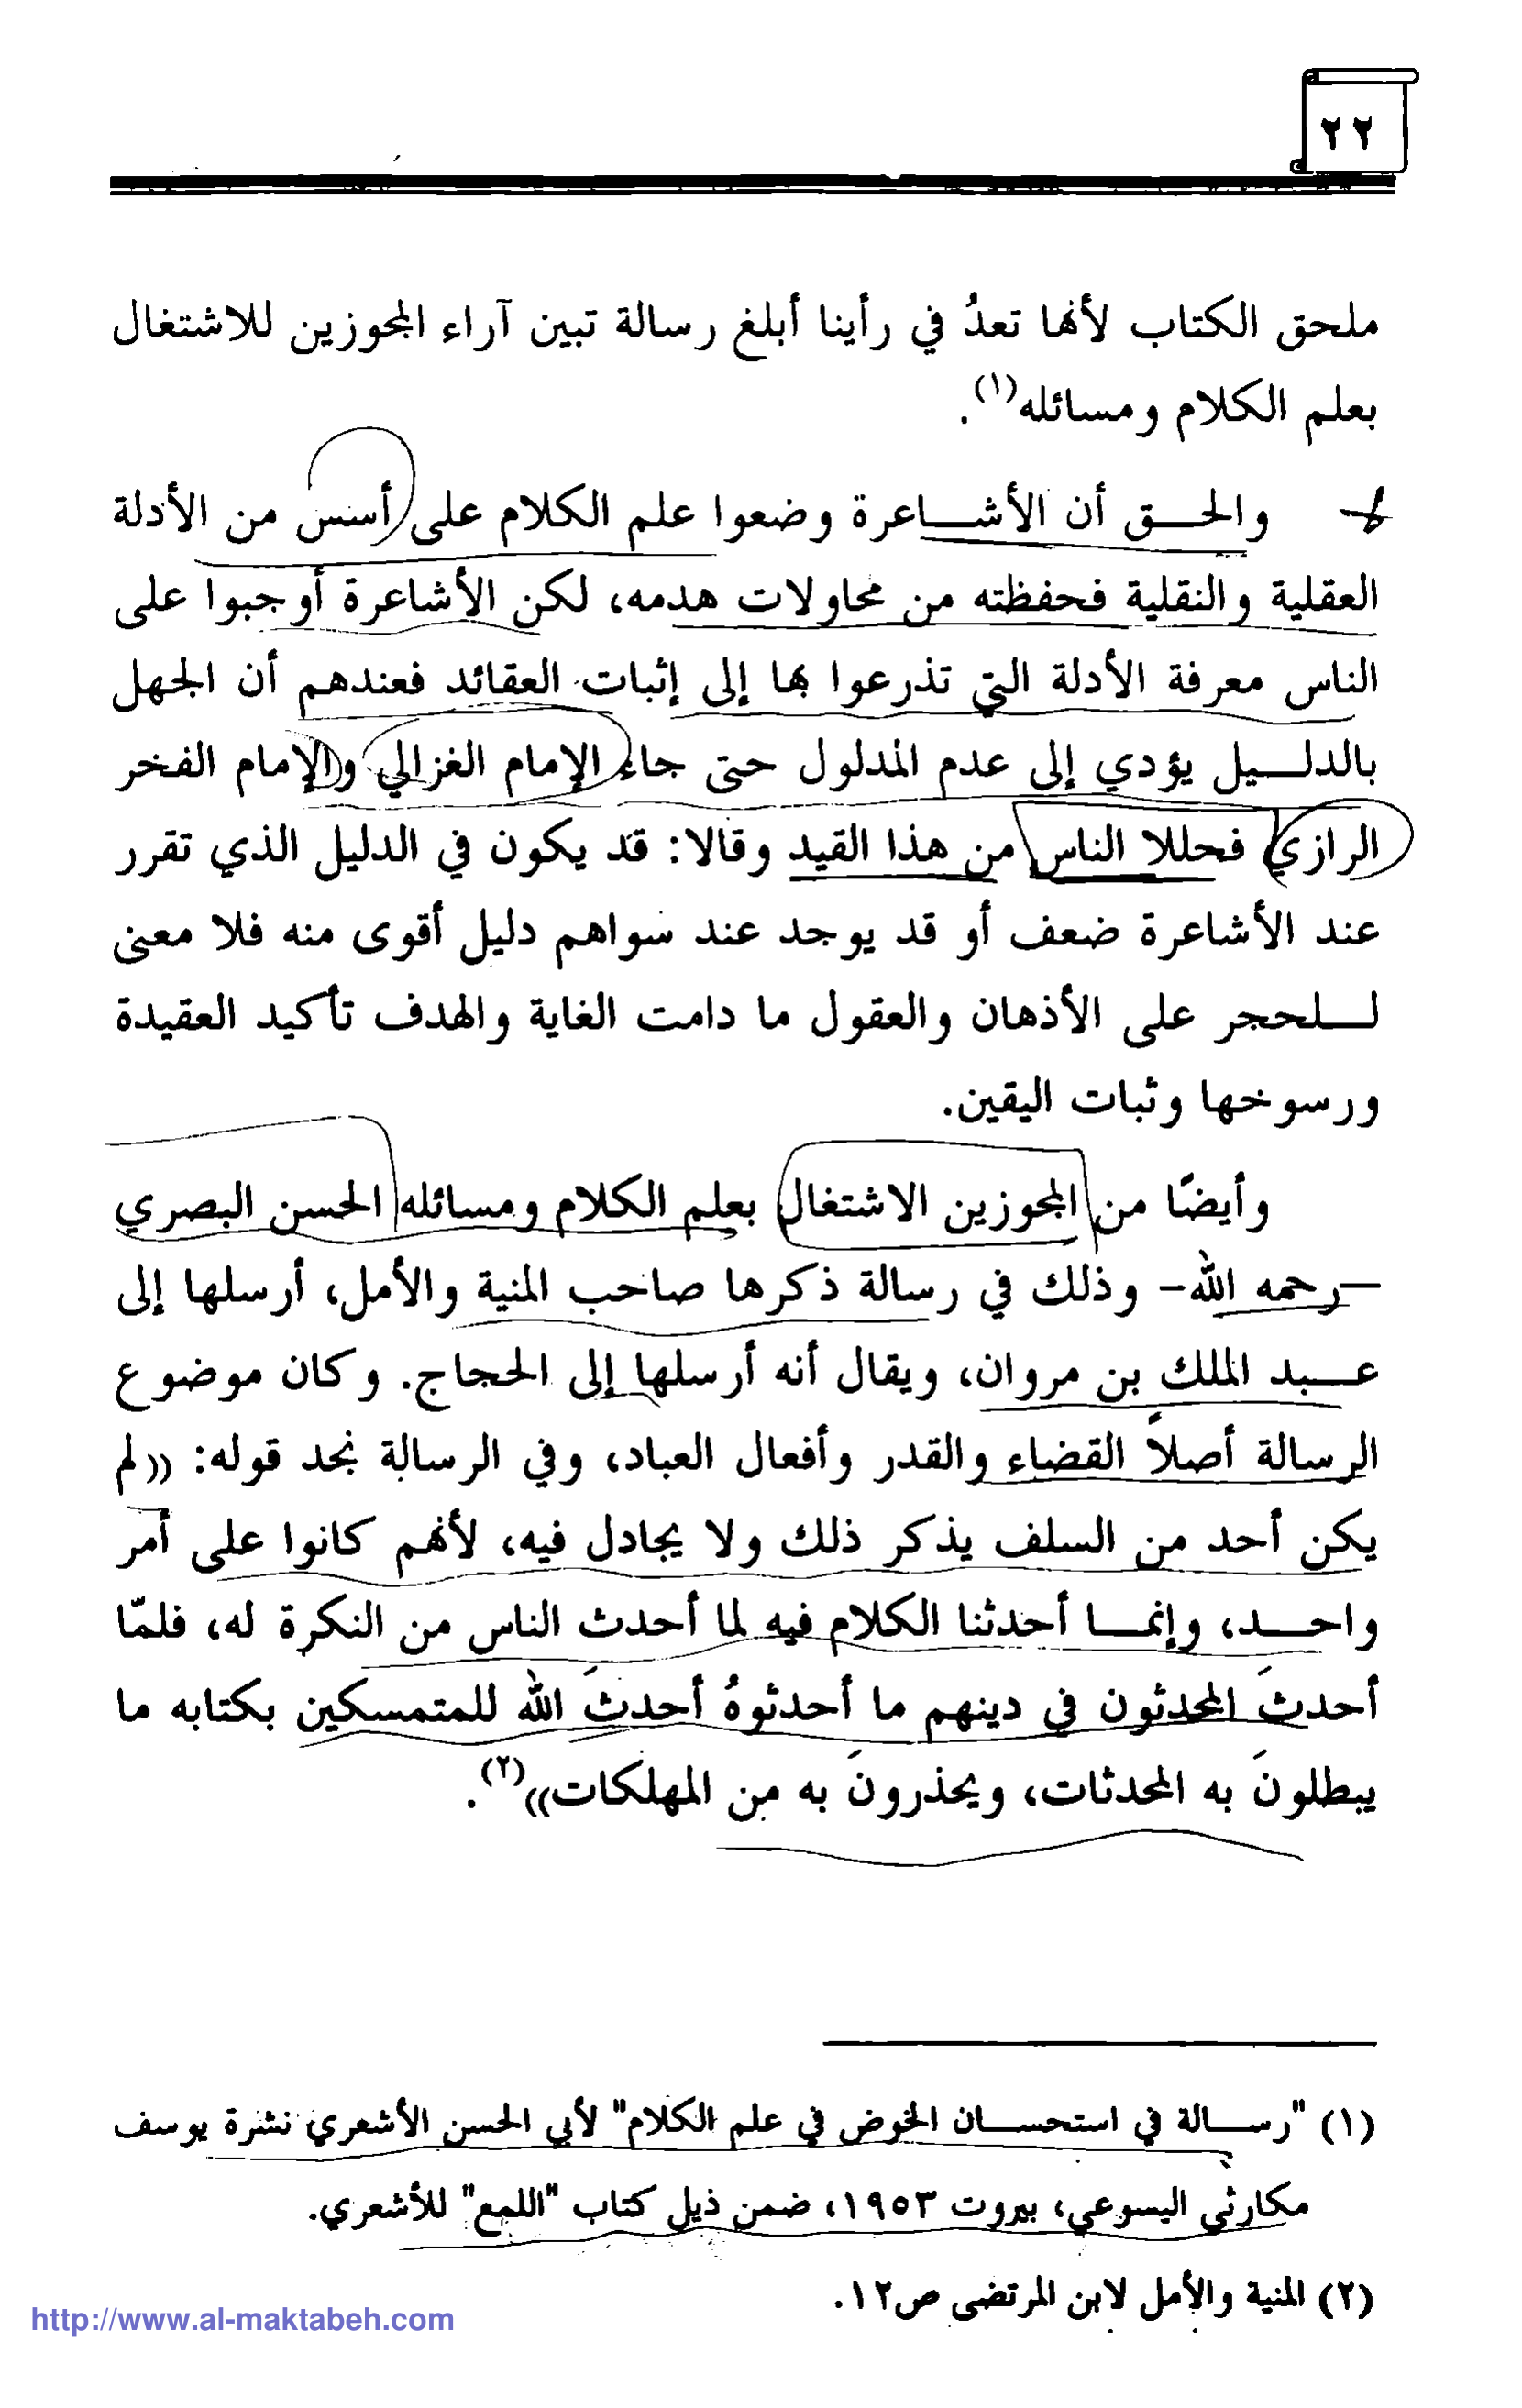 ٢٢
ملحق الكتاب لأنها تعدُ في رأينا أبلغ رسالة تبين آراء المجوزين للاشتغال
بعلم الكلام ومسائله(١).
والحق أن الأشاعرة وضعوا علم الكلام على أسس من الأدلة
العقلية والنقلية فحفظته من محاولات هدمه، لكن الأشاعرة أوجبوا على
الناس معرفة الأدلة التي تذرعوا بها إلى إثبات العقائد فعندهم أن الجهل
بالدليل يؤدي إلى عدم المدلول حتى جاء الإمام الغزالي والإمام الفخر
الرازي فحللا الناس من هذا القيد وقالا: قد يكون في الدليل الذي تقرر
عند الأشاعرة ضعف أو قد يوجد عند سواهم دليل أقوى منه فلا معنى
للحجر على الأذهان والعقول ما دامت الغاية والهدف تأكيد العقيدة
ورسوخها وثبات اليقين.
وأيضًا من المجوزين الاشتغال بعلم الكلام ومسائله الحسن البصري
–رحمه الله- وذلك في رسالة ذكرها صاحب المنية والأمل، أرسلها إلى
عبد الملك بن مروان، ويقال أنه أرسلها إلى الحجاج. وكان موضوع
الرسالة أصلاً القضاء والقدر وأفعال العباد، وفي الرسالة نجد قوله: ((لم
يكن أحد من السلف يذكر ذلك ولا يجادل فيه، لأنهم كانوا على أمر
واحد، وإنما أحدثنا الكلام فيه لما أحدث الناس من النكرة له، فلمّا
أحدثَ المحدثون في دينهم ما أحدثوهُ أحدثَ الله للمتمسكين بكتابه ما
يبطلونَ به المحدثات، ويحذرونَ به من المهلكات))(٢).
(١) "رسالة في استحسان الخوض في علم الكلام" لأبي الحسن الأشعري نشرة يوسف
مكارثي اليسوعي، بيروت ١٩٥٣، ضمن ذيل كتاب "اللمع" للأشعري.
(٢) المنية والأمل لابن المرتضى ص١٢.
http://www.al-maktabeh.com